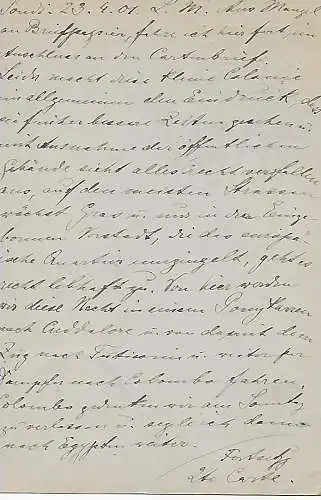 Pondi. 23.4.01. L. M. Aus Mangel
an Briefpapier, fahre ich hier fort, im
Anschluss an den Cartenbrief.
Leids macht diese kleine Colonie
im allgemeinen den Eindruck, dass
sie früher bessere Zeiten gesehen u.
mit Ausnahme der öffentlichen
Gebäude sieht alles recht verfallen
aus, auf den meisten Strassen
wächst Gras u. nur in der Einge-
bornen Vorstadt, die das europä-
ische Quartier umzingelt, geht es
recht lebhaft zu. Von hier werden
wir diese Nacht in einem Ponykarren
nach Cuddelore u. von da mit dem
Zug nach Tuticorin u. weiter per
Dampfer nach Colombo fahren.
Colombo gedenken wir am Samstag
zu verlassen u. sogleich dann
nach Egypten weiter.
Fortsetzg
2te Carte.